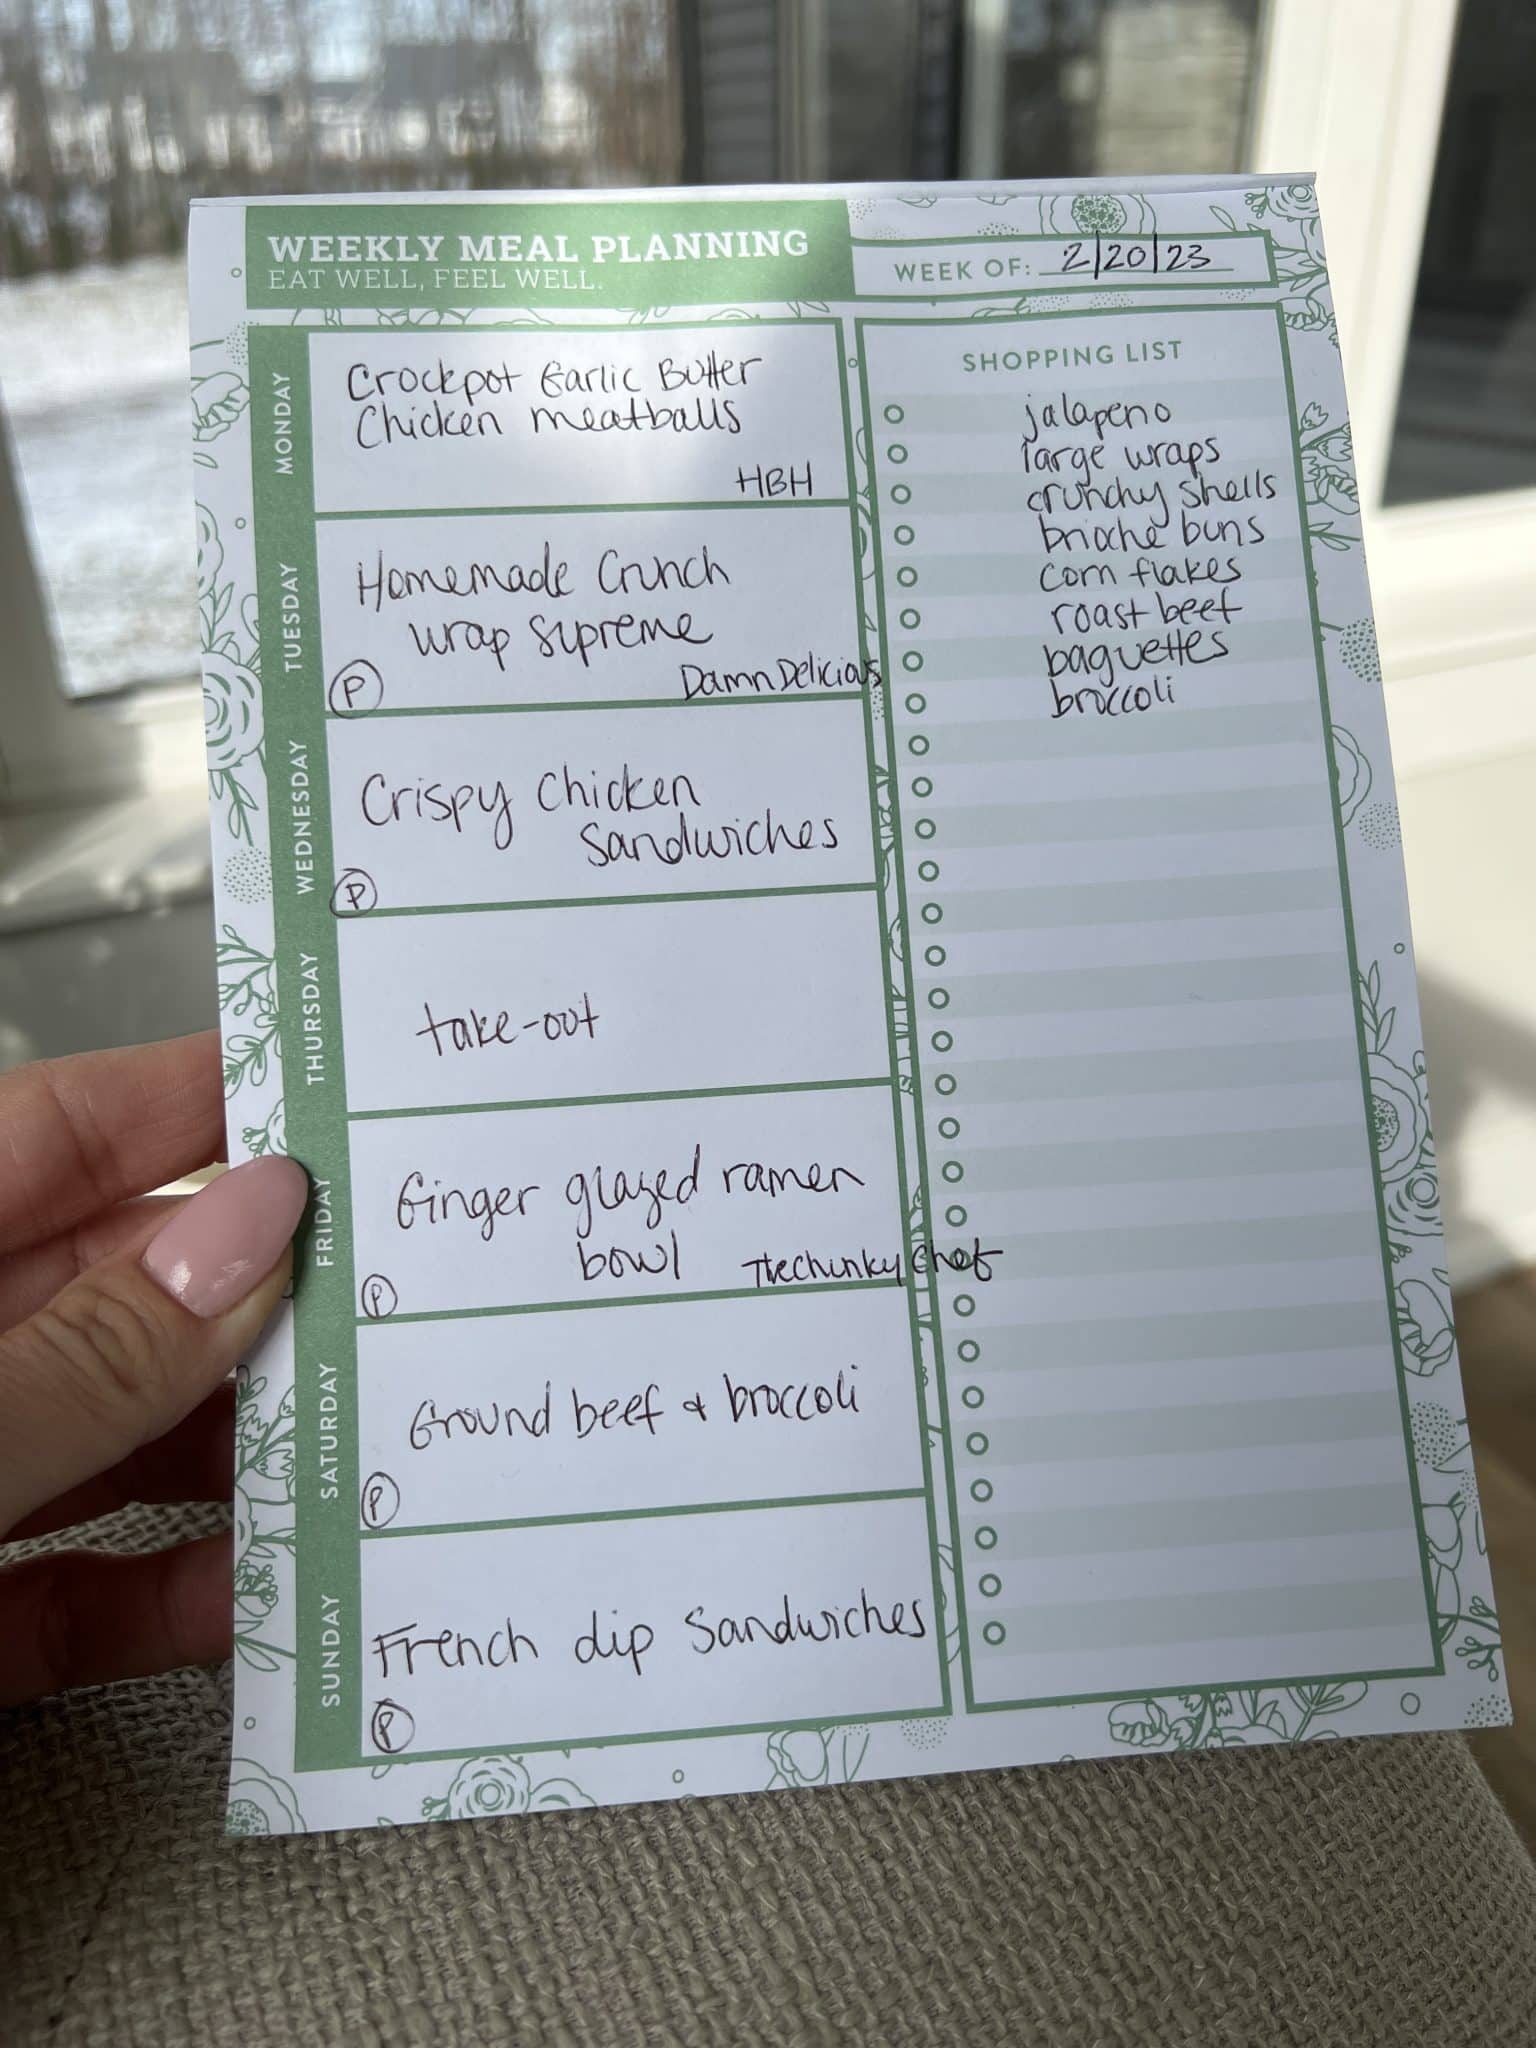 WEEKLY MEAL PLANNING
EAT WELL, FEEL WELL.
WEEK OF: 2/20/23
MONDAY
Crockpot Garlic Butter
Chicken meatballs
HBH
TUESDAY
Homemade Crunch
wrap supreme
Damn Delicious
P
WEDNESDAY
Crispy Chicken
Sandwiches
P
THURSDAY
take-out
FRIDAY
Ginger glazed ramen
bowl
TheChunkyChef
P
SATURDAY
Ground beef & broccoli
P
SUNDAY
French dip Sandwiches
P
SHOPPING LIST
jalapeno
large wraps
crunchy shells
brioche buns
corn flakes
roast beef
baguettes
broccoli